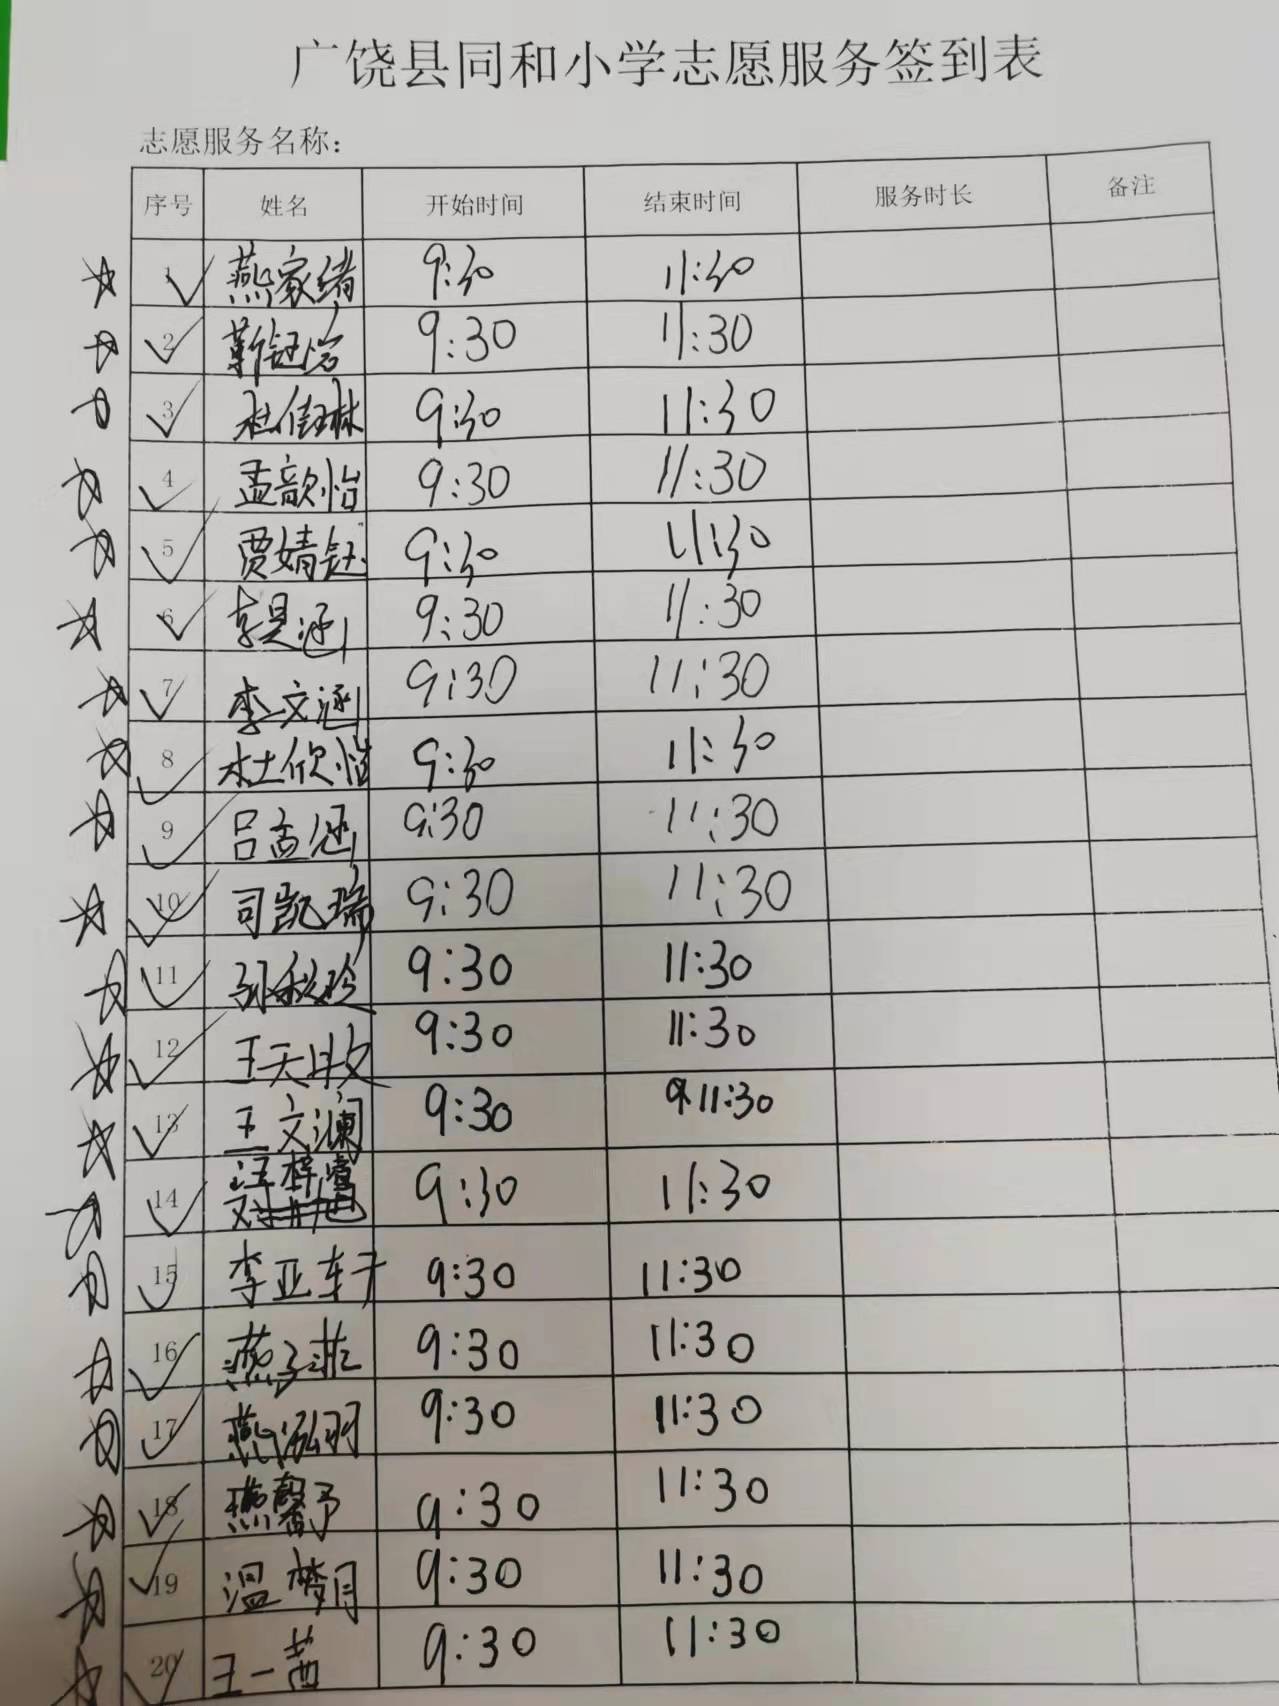 广饶县同和小学志愿服务签到表
志愿服务名称：
序号 姓名 开始时间 结束时间 服务时长 备注
1 燕家绪 9:30 11:30
2 靳钰涵 9:30 11:30
3 杜佳琳 9:30 11:30
4 孟歆怡 9:30 11:30
5 贾婧钰 9:30 11:30
6 李昊涵 9:30 11:30
7 李文涵 9:30 11:30
8 杜欣怡 9:30 11:30
9 吕孟涵 9:30 11:30
10 司凯瑞 9:30 11:30
11 孙秋玲 9:30 11:30
12 王天牧 9:30 11:30
13 王文澜 9:30 11:30
14 汪梓萱 9:30 11:30
15 李亚轩 9:30 11:30
16 燕子淇 9:30 11:30
17 燕泓羽 9:30 11:30
18 燕馨予 9:30 11:30
19 温梦月 9:30 11:30
20 王一茜 9:30 11:30